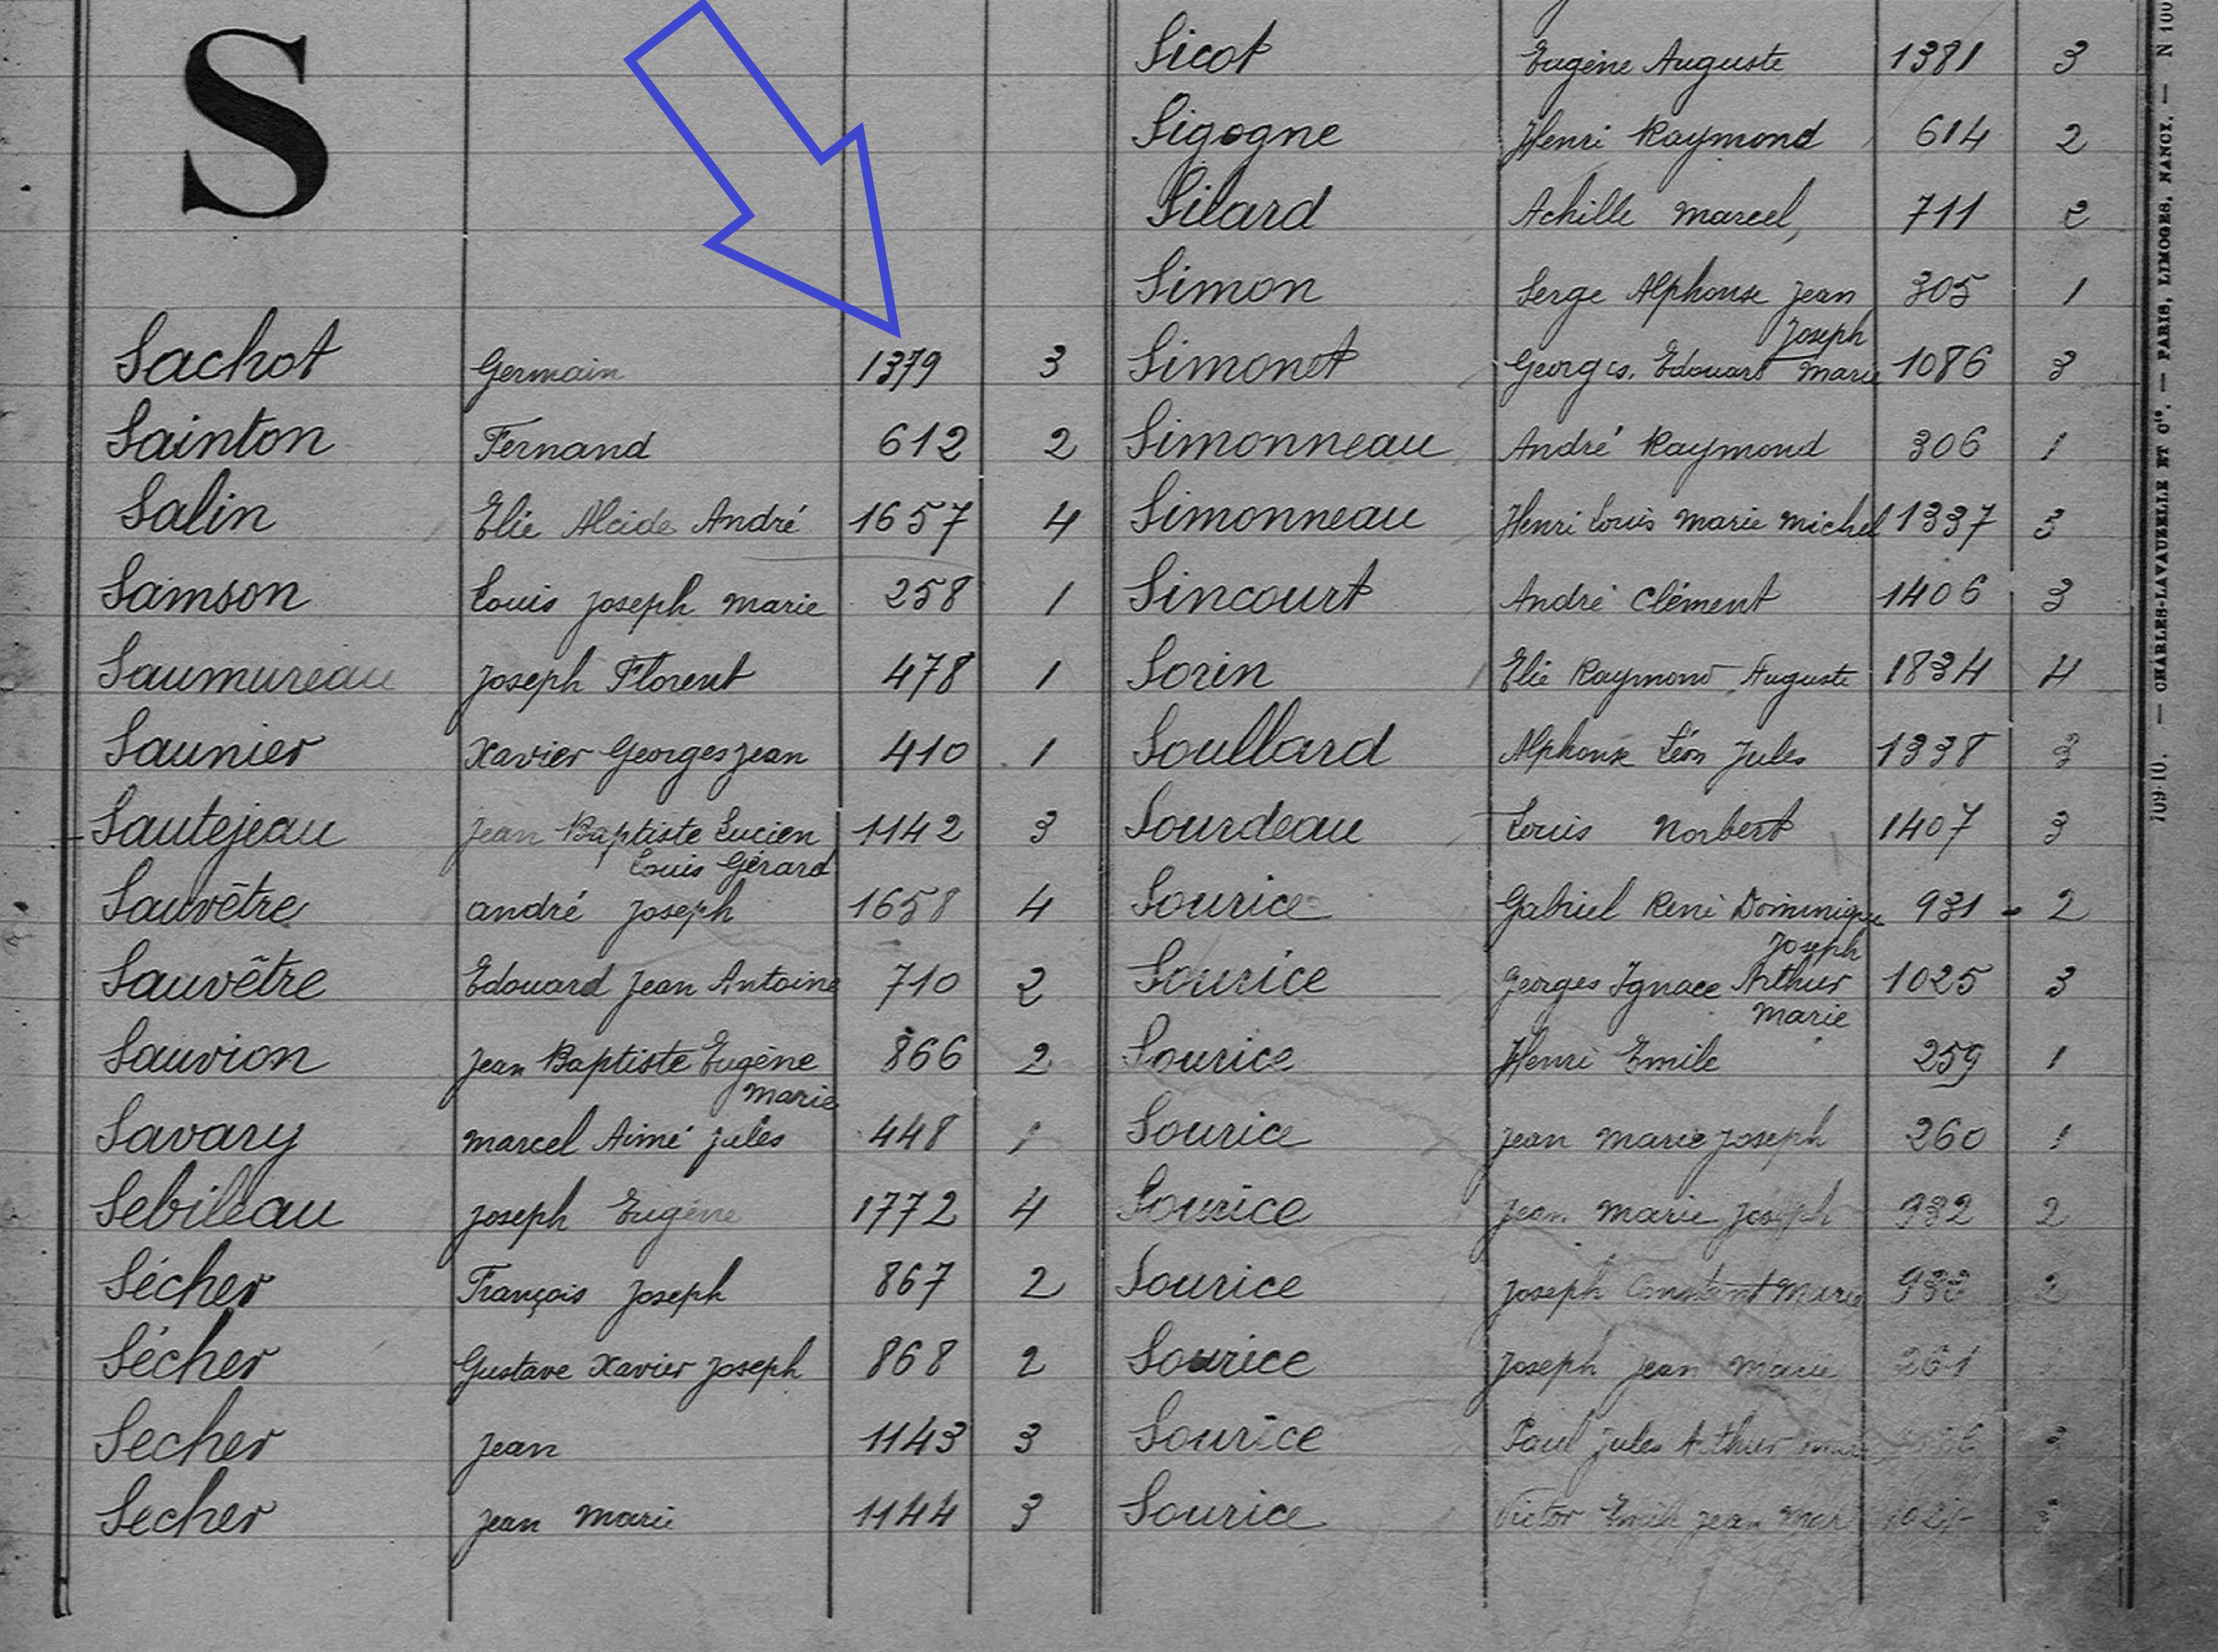 S
Sachot Germain 1379 3
Sainton Fernand 612 2
Salin Elie Alcide André 1657 4
Samson Louis Joseph Marie 258 1
Saumureau Joseph Florent 478 1
Saunier Xavier Georges Jean 410 1
Sautejeau Jean Baptiste Lucien 1142 3
Louis Gérard
Sauvêtre André Joseph 1658 4
Sauvêtre Edouard Jean Antoine 710 2
Sauvion Jean Baptiste Eugène 866 2
Marie
Savary Marcel Aimé Jules 448 1
Sebileau Joseph Eugène 1772 4
Sécher François Joseph 867 2
Sécher Gustave Xavier Joseph 868 2
Secher Jean 1143 3
Secher Jean Marie 1144 3
Sicot Eugène Auguste 1381 3
Sigogne Henri Raymond 614 2
Silard Achille Marcel, 711 2
Simon Serge Alphonse Jean 305 1
Joseph
Simonet Georges Edouart Marie 1086 3
Simonneau André Raymond 306 1
Simonneau Henri Louis Marie Michel 1337 3
Sincourt André Clément 1406 3
Sorin Elie Raymond Auguste 1834 4
Soullard Alphonse Léon Jules 1338 3
Sourdeau Louis Norbert 1407 3
Sourice Gabriel René Dominique 931 - 2
Joseph
Sourice Georges Ignace Arthur 1025 3
Marie
Sourice Henri Emile 259 1
Sourice Jean Marie Joseph 260 1
Sourice Jean Marie Joseph 932 2
Sourice Joseph Constant Marie 2
Sourice Joseph Jean Marie 261
Sourice Paul Jules Arthur 3
Sourice Victor Emile Jean 3
109-10. — CHARLES-LAVAUZELLE ET Cie. — PARIS, LIMOGES, NANCY. — N 100